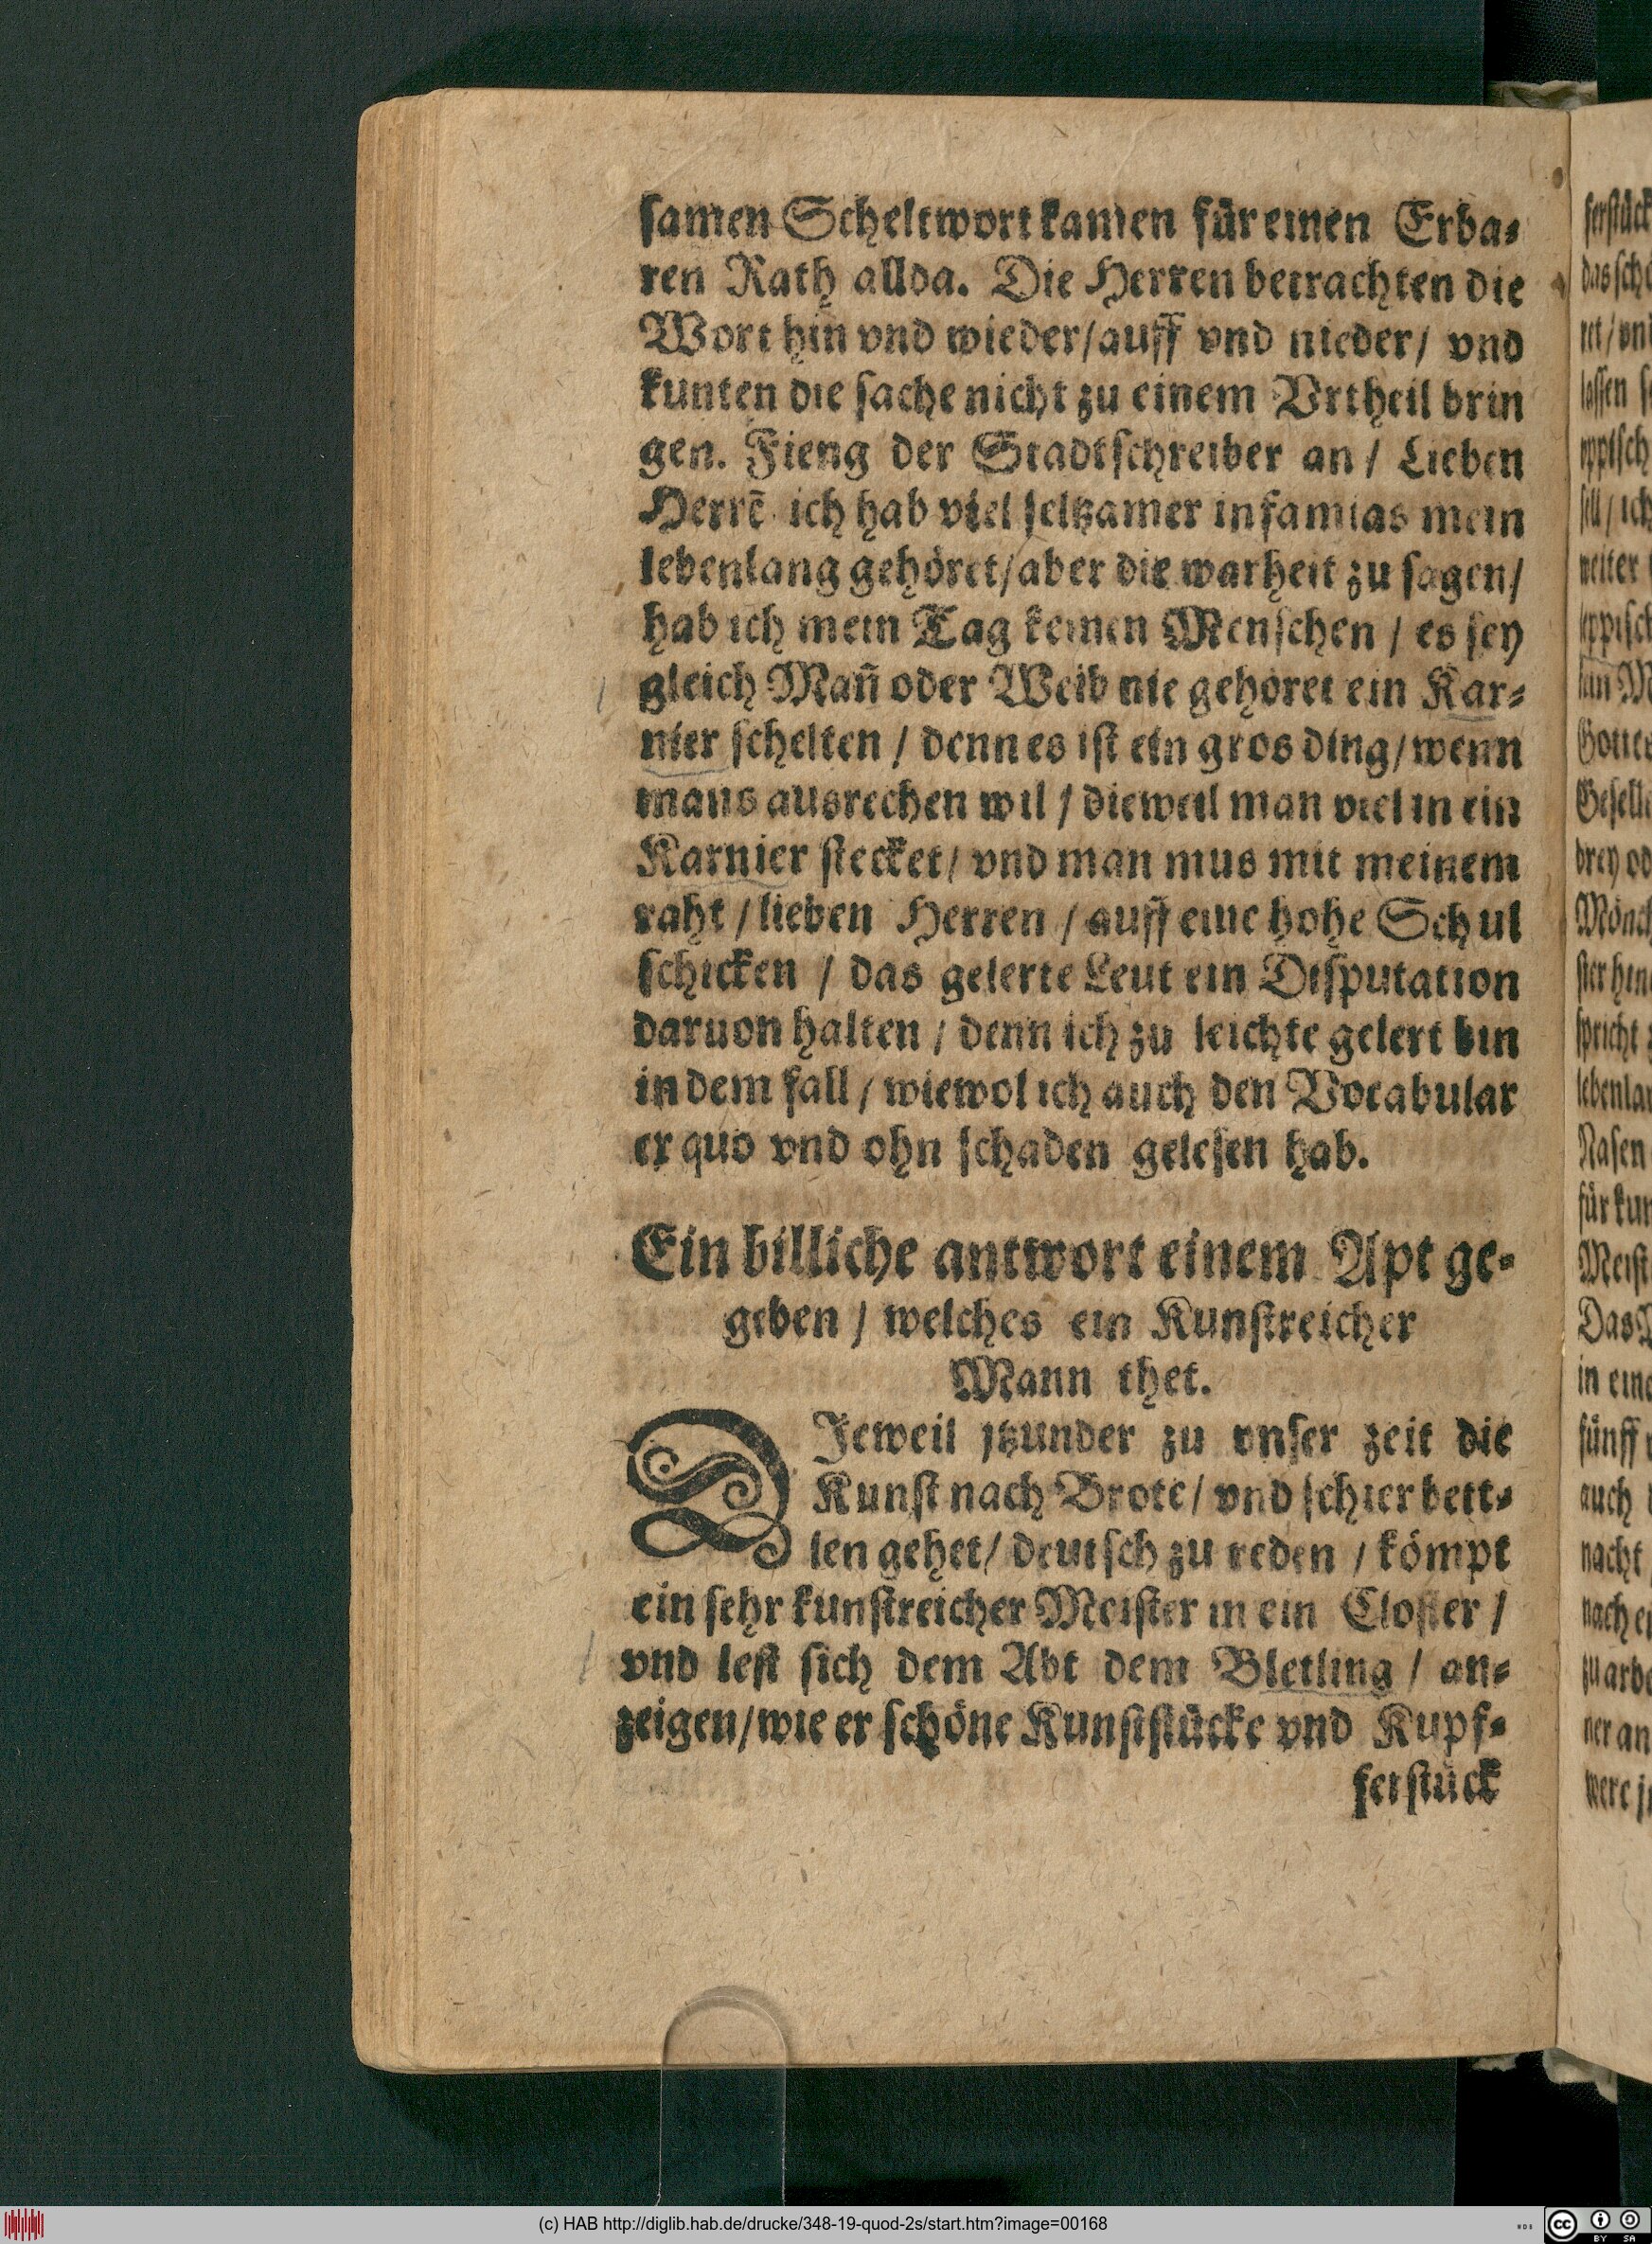 ſamen Scheltwort kamen für einen Erba⸗
ren Rath allda. Die Herren betrachten die
Wort hin vnd wieder/auff vnd nieder/ vnd
kunten die ſache nicht zu einem Vrtheil brin
gen. Fieng der Stadtſchreiber an / Lieben
Herrē ich hab viel ſeltzamer infamias mein
lebenlang gehöret/aber die warheit zu ſagen/
hab ich mein Tag keinen Menſchen / es ſey
gleich Mañ oder Weib nie gehöret ein Kar⸗
nier ſchelten / denn es iſt ein gros ding/wenn
mans ausrechen wil / dieweil man viel in ein
Karnier ſtecket/ vnd man mus mit meinem
raht / lieben Herren / auff eine hohe Schul
ſchicken / das gelerte Leut ein Diſputation
daruon halten / denn ich zu leichte gelert bin
in dem fall / wiewol ich auch den Vocabular
ex quo vnd ohn ſchaden geleſen hab.
Ein billiche antwort einem Apt ge⸗
geben / welches ein Kunſtreicher
Mann thet.
DJeweil jtzunder zu vnſer zeit die
Kunſt nach Brote/ vnd ſchier bett⸗
len gehet/ deutſch zu reden / kömpt
ein ſehr kunſtreicher Meiſter in ein Cloſter /
vnd leſt ſich dem Abt dem Bletling / an⸗
zeigen/wie er ſchöne Kunſtſtücke vnd Kupf⸗
ferſtück
ferſtück
das ſchö
ret/vnd
laſſen ſ
ſell/ich
weiter
Gottes
Geſelle
drey od
Mönch
ſter hin
ſpricht
lebenlan
Naſen
für kun
Meiſt
Das
in eine
fünff
auch
nacht
nach ei
zu arbe
ner an
were j
(c) HAB http://diglib.hab.de/drucke/348-19-quod-2s/start.htm?image=00168
cc BY SA